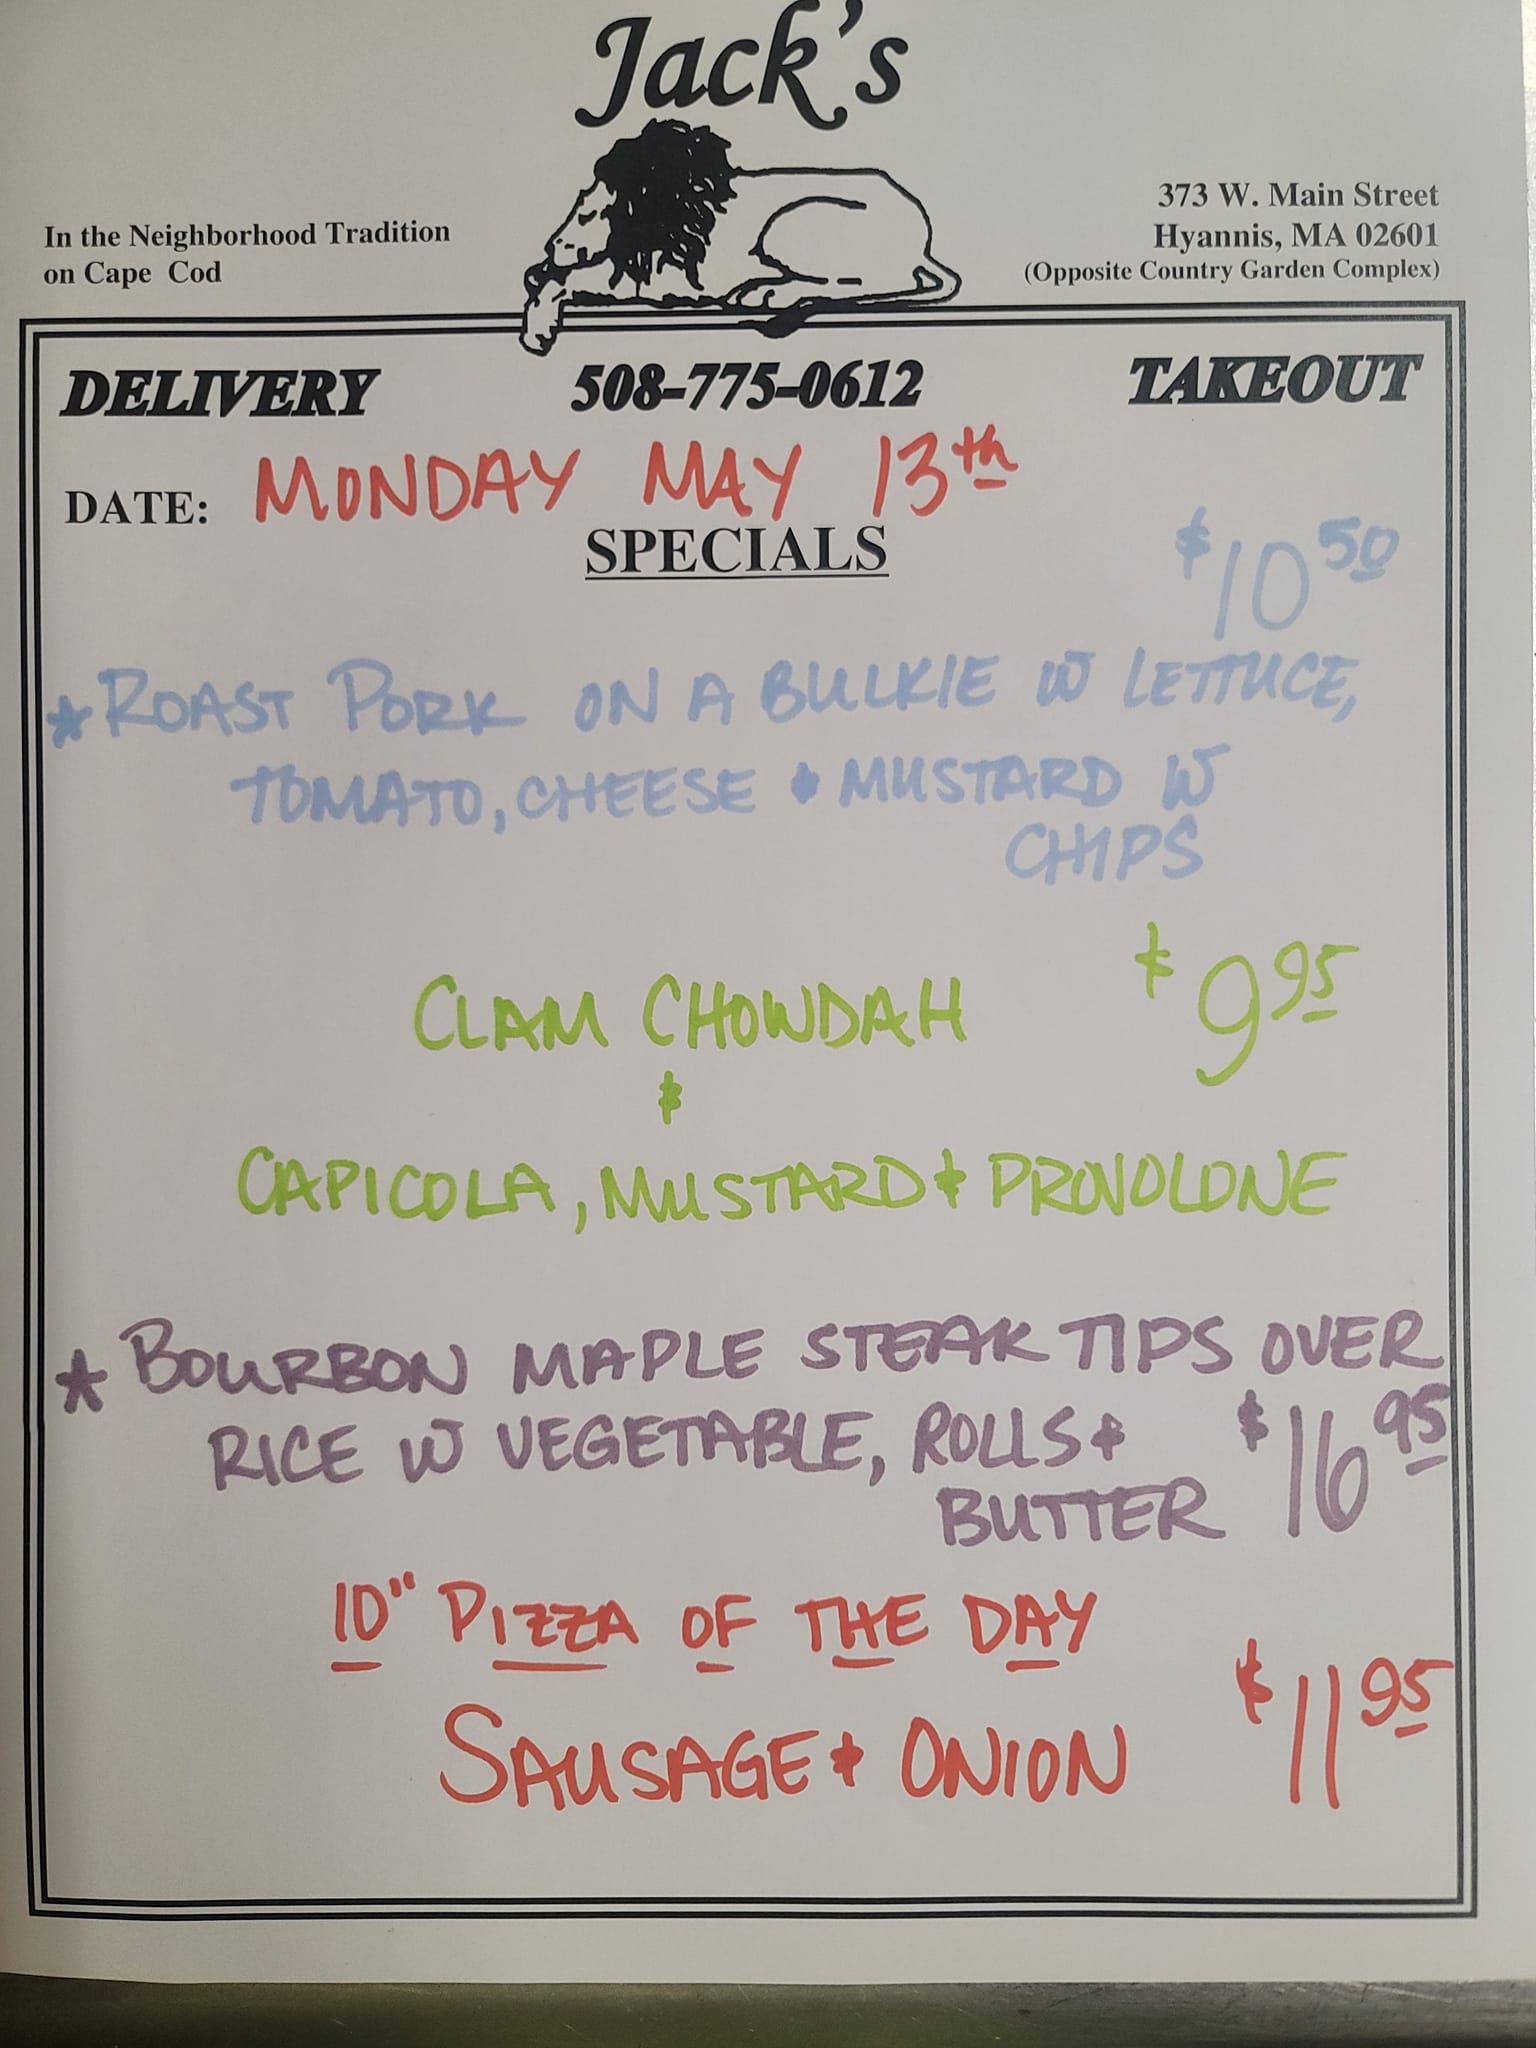 Jack's
In the Neighborhood Tradition
on Cape Cod
373 W. Main Street
Hyannis, MA 02601
(Opposite Country Garden Complex)
DELIVERY 508-775-0612 TAKEOUT
DATE: MONDAY MAY 13th
SPECIALS
$10 50
* ROAST PORK ON A BULKIE W LETTUCE,
TOMATO, CHEESE & MUSTARD W
CHIPS
CLAM CHOWDAH $9 95
&
CAPICOLA, MUSTARD & PROVOLONE
* BOURBON MAPLE STEAK TIPS OVER
RICE W VEGETABLE, ROLLS & $16 95
BUTTER
10" PIZZA OF THE DAY
SAUSAGE & ONION $11 95